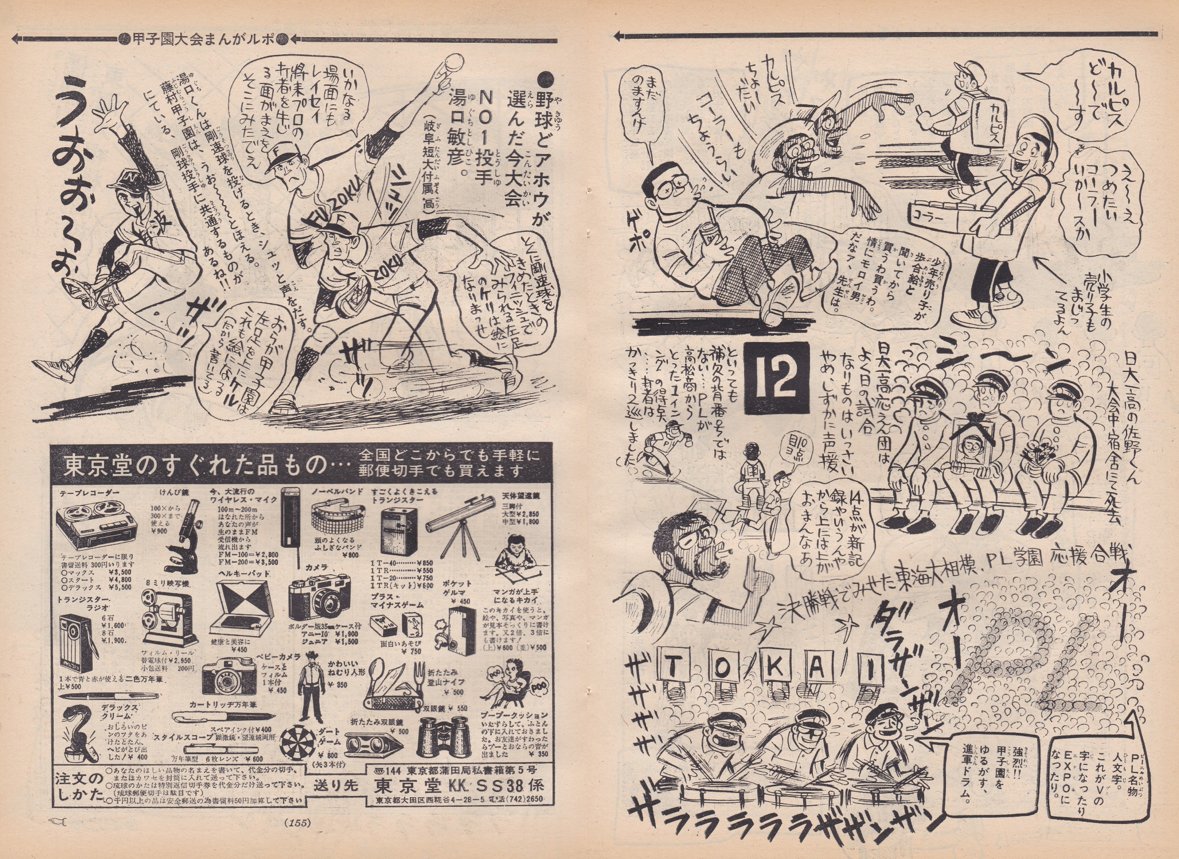 カルピス
ど〜で
〜す
え〜〜え
つめたい
コーフィー
いかースか
カルピス
コーラー
カルピス
ちょーだい
コーラーも
ちょうらい
まだ
のますんけ
ゲポ
少年売り子が
歩合給と
聞いてから
買うわ買うわ。
情にモロイ男
だなァ、先生は。
小学生の
売り子も
まじっ
てるよ。
日大一高の佐野くん
大会中、宿舎にて急死
シーーン
日大一高応えん団は
よく日の試合
なりものはいっさい
やめしずかに声援
12
といっても
補欠の背番号では
ない…PLが
高松商から
とった1イニン
グの得点。
…打者は
かっきり二巡しました
10点
目
14点が新記
録やいうんや
から上には上が
おまんなあ
決勝戦でみせた東海大相模、PL学園応援合戦
オーー
オーー
PL
TOKAI
ダラザンザンザン
ギギギギギ
ザラララララザザンザン
強烈!!
甲子園を
ゆるがす、
進軍ドラム。
PL名物
人文字。
これがVの
字になったり
EXPOに
なったり。
甲子園大会まんがルポ
●野球どアホウが
選んだ今大会
NO1投手
湯口敏彦。
(岐阜短大付属高)
いかなる
場面にも
レイセイ
将来プロの
打者を牛じ
る面がまえを
そこにみたでえ
FUZOKU
ZOKU
シュッ
とくに剛速球を
きめたときの
フィニッシュで
みられる左足
のケリは絵に
なりまっせ
湯口くんは剛速球を投げるとき、シュッと声をだす。
藤村甲子園は、うお〜〜〜とほえる。
にている。剛球投手に共通するものが
あるね!!
うおお〜お
ザザ
ザザッ
おらが甲子園は
左足をこうケル
これも絵になる
(だから書いてる)
東京堂のすぐれた品もの…
全国どこからでも手軽に
郵便切手でも買えます
テープレコーダー
テープレコーダーに限り
書留送料 300円いります
○マックス ¥3,500
○スタート ¥4,800
○デラックス ¥5,500
けんび鏡
100×から
300×まで
使える
¥900
今、大流行の
ワイヤレス・マイク
100m〜200m
はなれた所から
あなたの声が
生のままFM
受信機から
流れ出ます
FM-100=¥2,800
FM-200=¥3,500
ノーベルバンド
頭のよくなる
ふしぎなバンド
¥800
すごくよくきこえる
トランジスター
1T-40 ¥850
1T-20 ¥550
1T-20 ¥750
1TR(キット)¥600
天体望遠鏡
三脚付
大型¥2,850
中型¥1,800
トランジスター
ラジオ
6石
¥1,600
8石
¥1,900.
8ミリ映写機
フィルム・リール
替電球付¥2,950
小包送料 200円
ヘルキーパッド
健康と美容に
¥450
カメラ
ボルダー版35㎜ケース付
アニー10 ¥1,900
ジュニア ¥1,500
プラス・
マイナスゲーム
面白いあそび
¥750
ポケット
ゲルマ
¥450
マンガが上手
になるキカイ
このキカイを使うと、
絵や、写真や、マンガ
が見本そっくりに書け
ます。又2倍、3倍に
も書けます!
(上)¥600 (並)¥500
1本で青と赤が使える二色万年筆
上¥500
ベビーカメラ
ケースと
フィルム
1本付
¥450
かわいい
ねむり人形
¥350
折たたみ
登山ナイフ
¥500
デラックス
クリーム
おしろいのビ
ンのフタをあ
けたとたん、
ヘビがとび出
した! ¥400
カートリッヂ万年筆
スペアインク付¥400
スタイルスコープ 顕微鏡・望遠鏡両用
万年筆型 6枚レンズ ¥600
ダート
ゲーム
¥800
(矢3本付)
折たたみ双眼鏡
¥500
双眼鏡 ¥550
POO
ブーブークッション
いたずらして、ふとん
の下に入れておきまし
た。お友達がすわった
らブーとおならの音が
出ました ¥350
注文の
しかた
○あなたのほしい品物の名まえを書いて、代金分の切手、
またはカワセを封筒に入れて送って下さい。
○琉球のかたは特別返信切手券を代金分だけ送って下さい
(琉球郵便切手は駄目です)
○千円以上の品は安全郵送の為書留料50円加算して下さい
送り先
〠144 東京都蒲田局私書箱第5号
東京堂KK.SS38係
東京都大田区西糀谷4-28-5 電話(742)2650
(155)